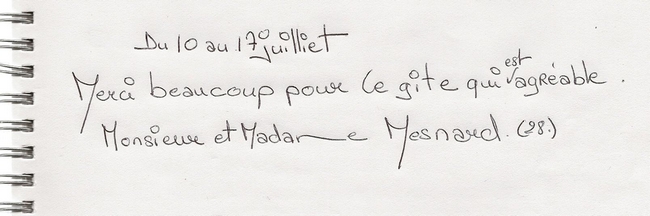 Du 10 au 17 juillet
Merci beaucoup pour le gîte qui est agréable.
Monsieur et Madame Mesnard. (28.)